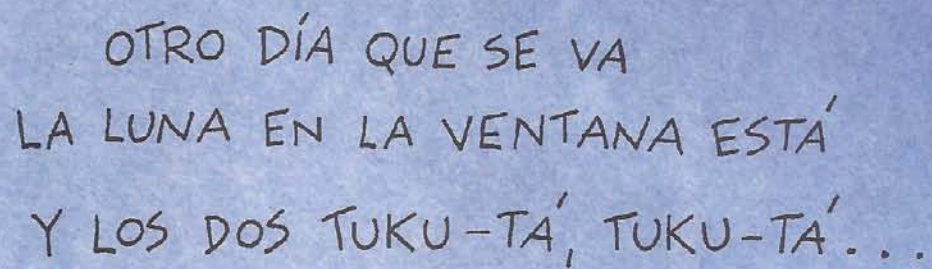 OTRO DÍA QUE SE VA
LA LUNA EN LA VENTANA ESTÁ
Y LOS DOS TUKU-TÁ, TUKU-TÁ...